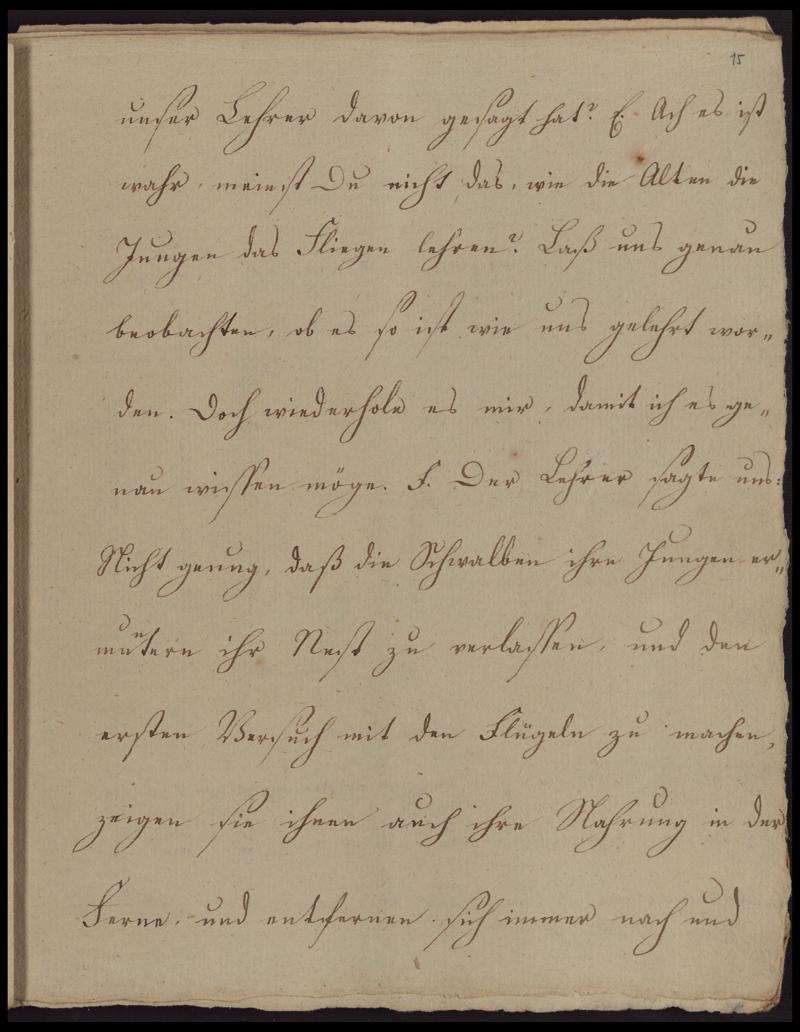 15
unser Lehrer davon gesagt hat? E. Ach es ist
wahr, meinst Du nicht das, wie die Alten die
Jungen das Fliegen lehren? Laß uns genau
beobachten, ob es so ist wie uns gelehrt wor„
den. Doch wiederhole es mir, damit ich es ge„
nau wissen möge. F. Der Lehrer sagte uns:
Nicht genug, daß die Schwalben ihre Jungen er„
muntern ihr Nest zu verlassen, und den
ersten Versuch mit den Flügeln zu machen,
zeigen sie ihnen auch ihre Nahrung in der
Ferne, und entfernen sich immer nach und